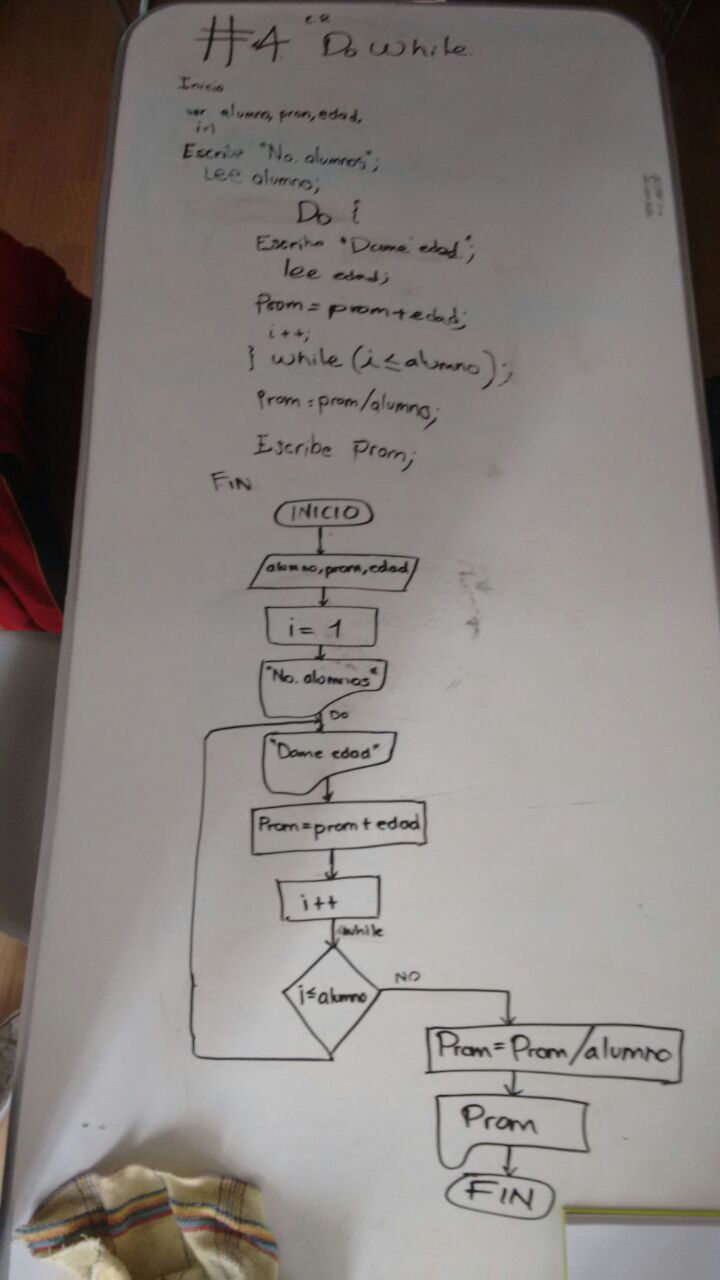 #4 "Do While
Inicio
var alumno, prom, edad,
i=1
Escribe "No. alumnos";
Lee alumno;
Do {
Escribe "Dame edad";
lee edad;
Prom = prom + edad;
i++;
} while (i ≤ alumno);
Prom = prom/alumno;
Escribe Prom;
FIN
INICIO
alumno, prom, edad
i = 1
"No. alumnos"
Do
"Dame edad"
Prom = prom + edad
i ++
while
i ≤ alumno
NO
Prom = Prom/alumno
Prom
FIN